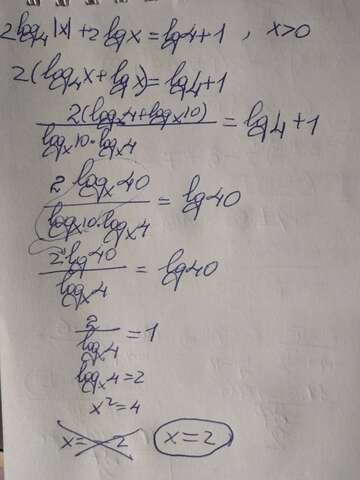 2log₄|x| + 2lgx = lg4+1 , x>0
2(log₄x+lgx)=lg4+1
2(logₓ4+logₓ10) / logₓ10·logₓ4 = lg4+1
2 logₓ40 / logₓ10·logₓ4 = lg40
2·lg40 / logₓ4 = lg40
2 / logₓ4 = 1
logₓ4=2
x²=4
x=-2 x=2